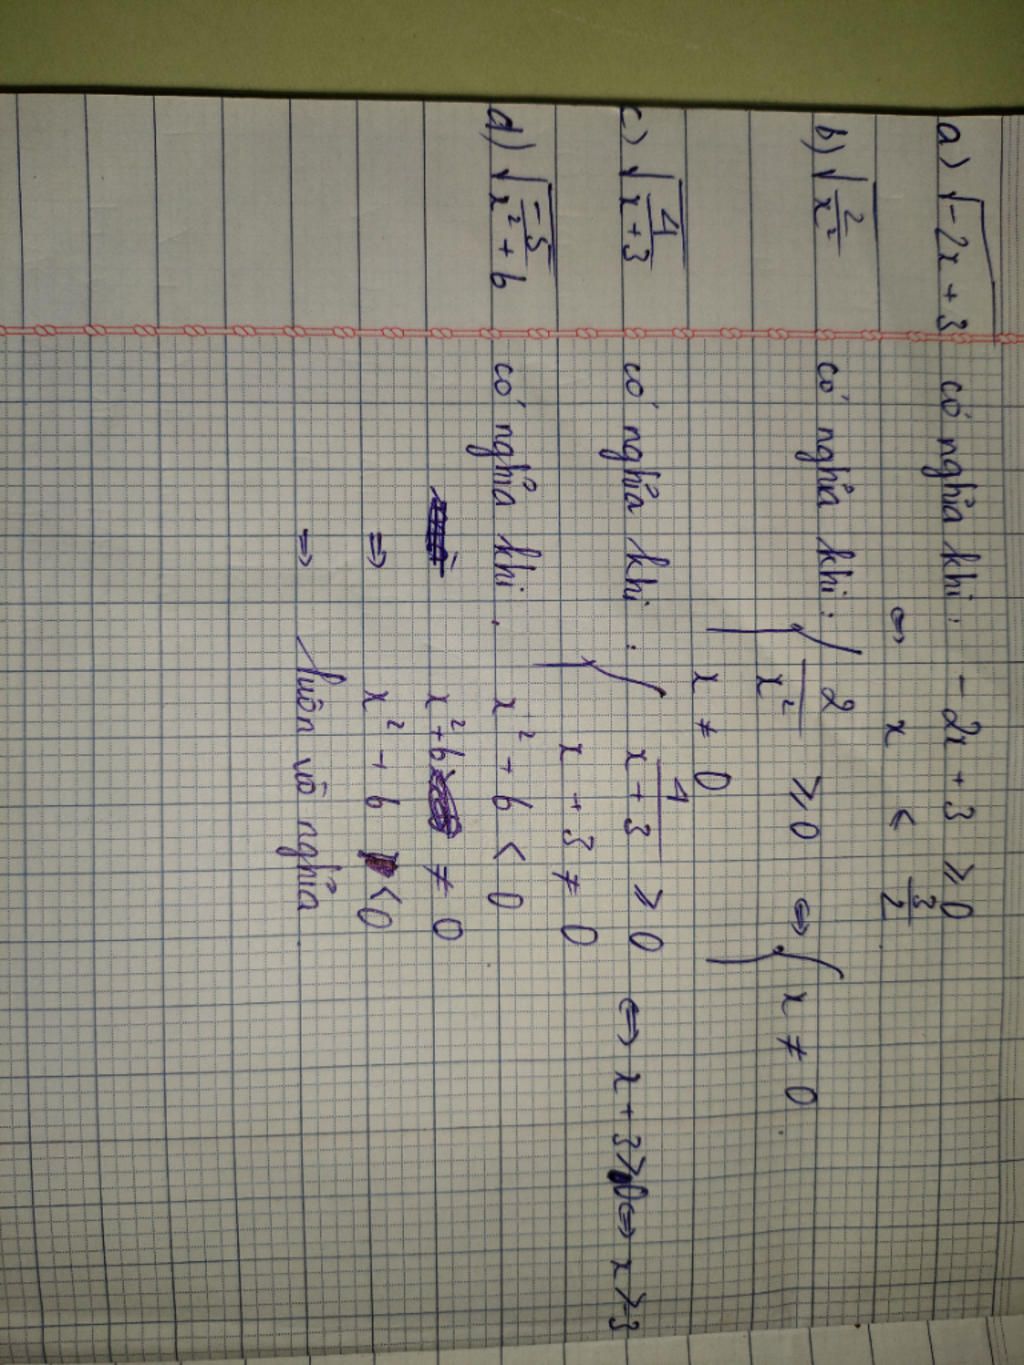 a) √-2x + 3 có nghĩa khi: -2x + 3 ⩾ 0
⇔ x ⩽ 3/2
b) √2/x² có nghĩa khi: { 2/x² ⩾ 0 ⇔ { x ≠ 0
x ≠ 0
c) √4/x+3 có nghĩa khi: { 4/x+3 ⩾ 0 ⇔ x + 3 > 0 ⇔ x > -3
x + 3 ≠ 0
d) √-5/x²+6 có nghĩa khi. x² + 6 < 0
x² + 6 ≠ 0
⇒ x² + 6 < 0
⇒ luôn vô nghĩa.